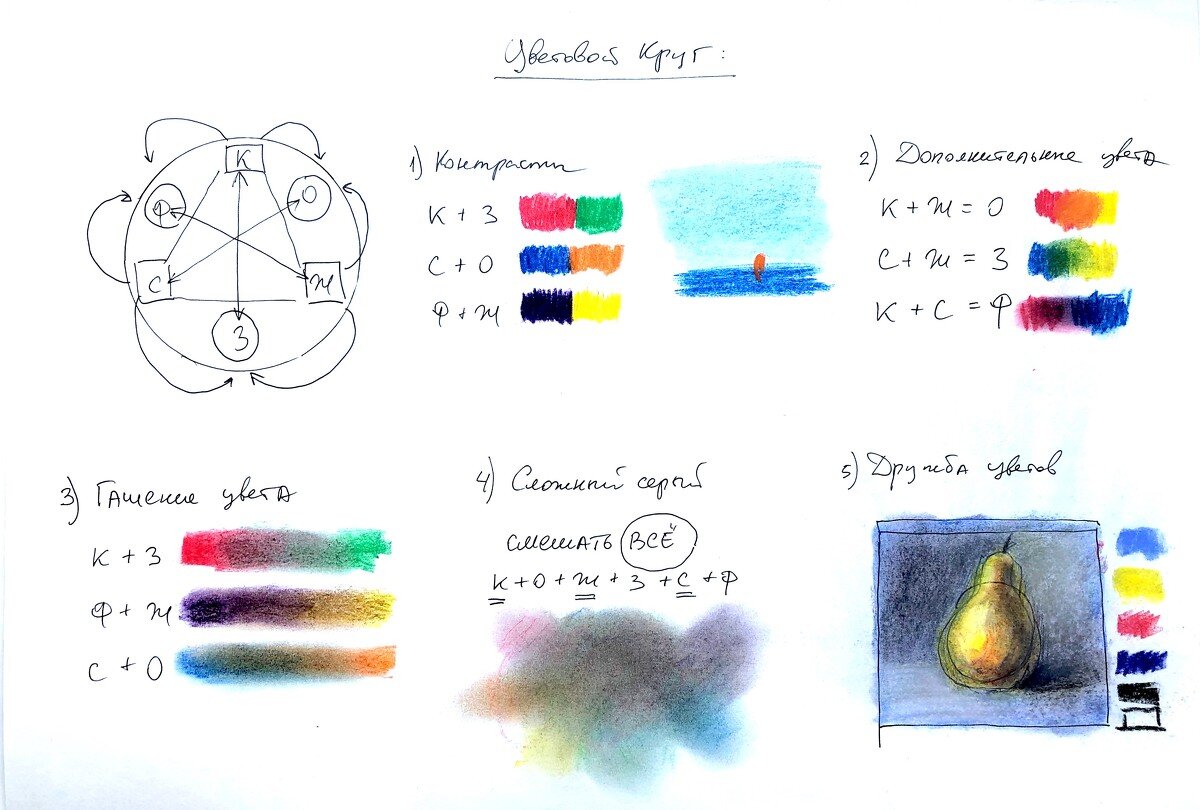 Цветовой круг:
К
Ф
О
С
Ж
З
1) Контрасты
К + З
С + О
Ф + Ж
2) Дополнительные цвета
К + Ж = О
С + Ж = З
К + С = Ф
3) Гашение цвета
К + З
Ф + Ж
С + О
4) Сложный серый
смешать ВСЁ
К + О + Ж + З + С + Ф
5) Дружба цветов